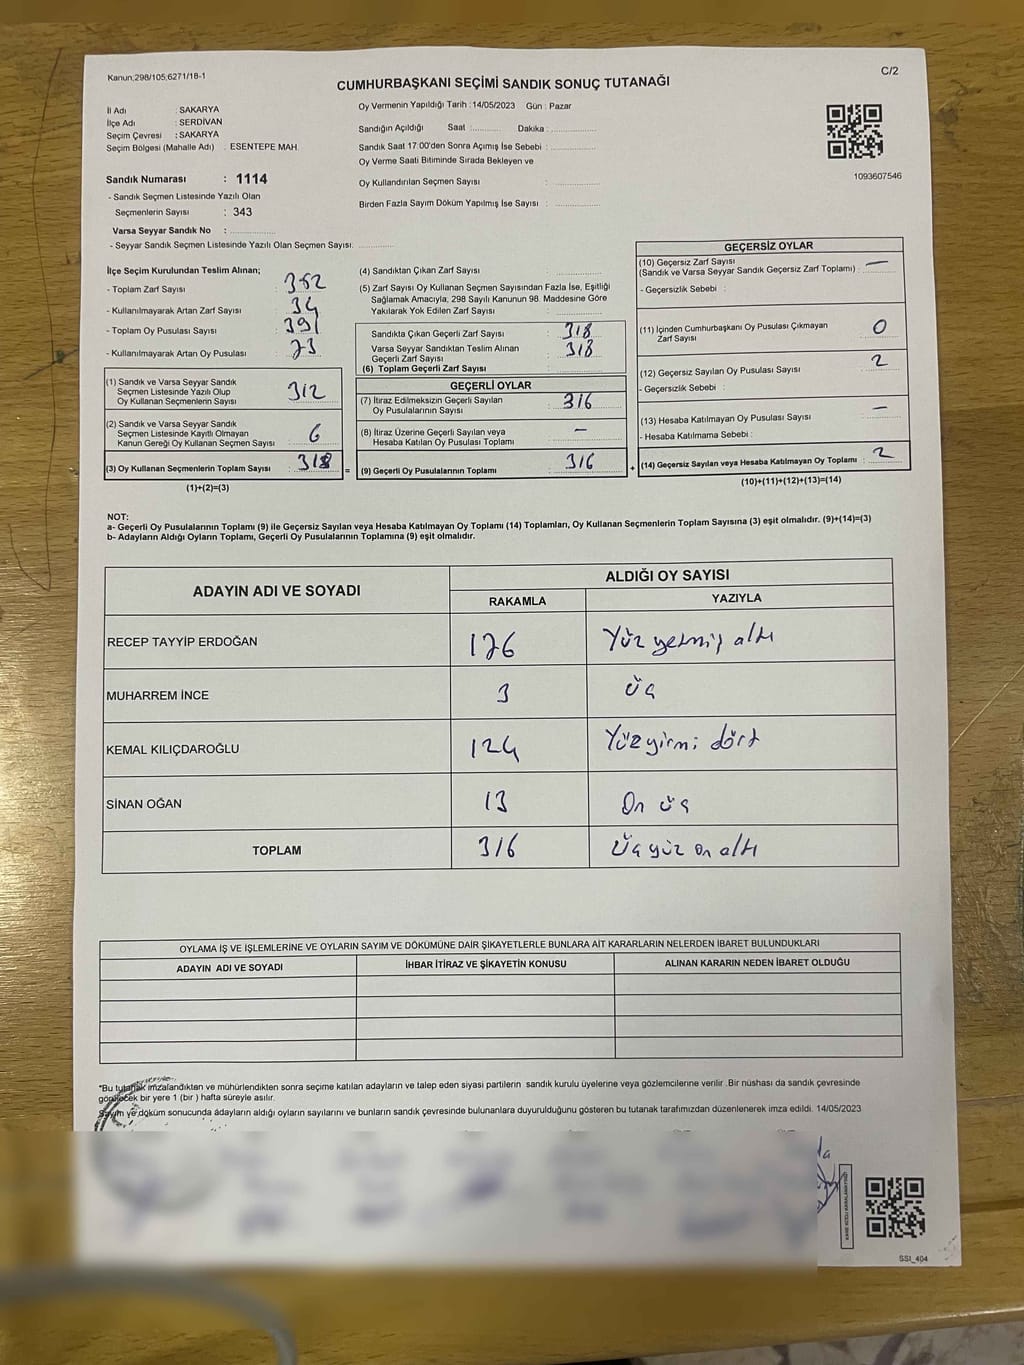 Kanun;298/105;6271/18-1
C/2
CUMHURBAŞKANI SEÇİMİ SANDIK SONUÇ TUTANAĞI
İl Adı : SAKARYA
İlçe Adı : SERDİVAN
Seçim Çevresi : SAKARYA
Seçim Bölgesi (Mahalle Adı) : ESENTEPE MAH.
Oy Vermenin Yapıldığı Tarih : 14/05/2023 Gün : Pazar
Sandığın Açıldığı Saat :........... Dakika :................
Sandık Saat 17:00'den Sonra Açımış İse Sebebi :................
Oy Verme Saati Bitiminde Sırada Bekleyen ve
Oy Kullandırılan Seçmen Sayısı :................
Birden Fazla Sayım Döküm Yapılmış İse Sayısı :................
1093607546
Sandık Numarası : 1114
- Sandık Seçmen Listesinde Yazılı Olan
Seçmenlerin Sayısı : 343
Varsa Seyyar Sandık No :................
- Seyyar Sandık Seçmen Listesinde Yazılı Olan Seçmen Sayısı: ............
İlçe Seçim Kurulundan Teslim Alınan;
- Toplam Zarf Sayısı : 352
- Kullanılmayarak Artan Zarf Sayısı : 34
- Toplam Oy Pusulası Sayısı : 391
- Kullanılmayarak Artan Oy Pusulası : 73
(1) Sandık ve Varsa Seyyar Sandık
Seçmen Listesinde Yazılı Olup
Oy Kullanan Seçmenlerin Sayısı : 312
(2) Sandık ve Varsa Seyyar Sandık
Seçmen Listesinde Kayıtlı Olmayan
Kanun Gereği Oy Kullanan Seçmen Sayısı : 6
(3) Oy Kullanan Seçmenlerin Toplam Sayısı : 318
(1)+(2)=(3)
=
(4) Sandıktan Çıkan Zarf Sayısı :................
(5) Zarf Sayısı Oy Kullanan Seçmen Sayısından Fazla İse, Eşitliği
Sağlamak Amacıyla, 298 Sayılı Kanunun 98. Maddesine Göre
Yakılarak Yok Edilen Zarf Sayısı :................
Sandıkta Çıkan Geçerli Zarf Sayısı : 318
Varsa Seyyar Sandıktan Teslim Alınan
Geçerli Zarf Sayısı : 318
(6) Toplam Geçerli Zarf Sayısı :
GEÇERLİ OYLAR
(7) İtiraz Edilmeksizin Geçerli Sayılan
Oy Pusulalarının Sayısı : 316
(8) İtiraz Üzerine Geçerli Sayılan veya
Hesaba Katılan Oy Pusulası Toplamı : –
(9) Geçerli Oy Pusulalarının Toplamı : 316
+
GEÇERSİZ OYLAR
(10) Geçersiz Zarf Sayısı
(Sandık ve Varsa Seyyar Sandık Geçersiz Zarf Toplamı) : –
- Geçersizlik Sebebi :
(11) İçinden Cumhurbaşkanı Oy Pusulası Çıkmayan
Zarf Sayısı : 0
(12) Geçersiz Sayılan Oy Pusulası Sayısı : 2
- Geçersizlik Sebebi :
(13) Hesaba Katılmayan Oy Pusulası Sayısı : –
- Hesaba Katılmama Sebebi :
(14) Geçersiz Sayılan veya Hesaba Katılmayan Oy Toplamı : 2
(10)+(11)+(12)+(13)=(14)
NOT:
a- Geçerli Oy Pusulalarının Toplamı (9) ile Geçersiz Sayılan veya Hesaba Katılmayan Oy Toplamı (14) Toplamları, Oy Kullanan Seçmenlerin Toplam Sayısına (3) eşit olmalıdır. (9)+(14)=(3)
b- Adayların Aldığı Oyların Toplamı, Geçerli Oy Pusulalarının Toplamına (9) eşit olmalıdır.
ADAYIN ADI VE SOYADI
ALDIĞI OY SAYISI
RAKAMLA YAZIYLA
RECEP TAYYİP ERDOĞAN 176 Yüz yetmiş altı
MUHARREM İNCE 3 üç
KEMAL KILIÇDAROĞLU 124 Yüz yirmi dört
SİNAN OĞAN 13 On üç
TOPLAM 316 Üçyüz on altı
OYLAMA İŞ VE İŞLEMLERİNE VE OYLARIN SAYIM VE DÖKÜMÜNE DAİR ŞİKAYETLERLE BUNLARA AİT KARARLARIN NELERDEN İBARET BULUNDUKLARI
ADAYIN ADI VE SOYADI İHBAR İTİRAZ VE ŞİKAYETİN KONUSU ALINAN KARARIN NEDEN İBARET OLDUĞU
*Bu tutanak imzalandıkten ve mühürlendikten sonra seçime katılan adayların ve talep eden siyasi partilerin sandık kurulu üyelerine veya gözlemcilerine verilir .Bir nüshası da sandık çevresinde
görülecek bir yere 1 (bir ) hafta süreyle asılır.
Sayım ve döküm sonucunda adayların aldığı oyların sayılarını ve bunların sandık çevresinde bulunanlara duyurulduğunu gösteren bu tutanak tarafımızdan düzenlenerek imza edildi. 14/05/2023
SSI_404